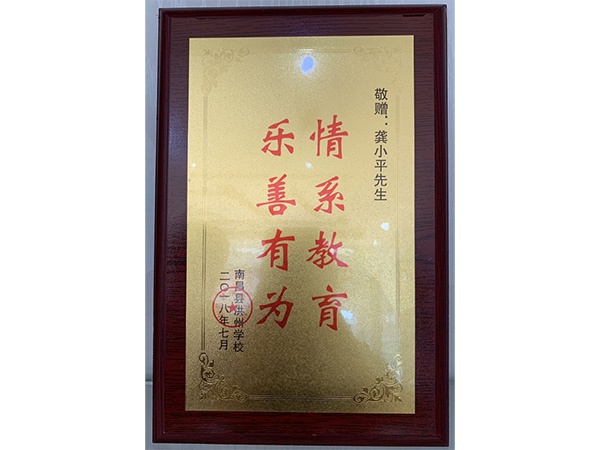 敬赠：龚小平先生
情系教育
乐善有为
南昌县洪州学校
二〇一八年七月